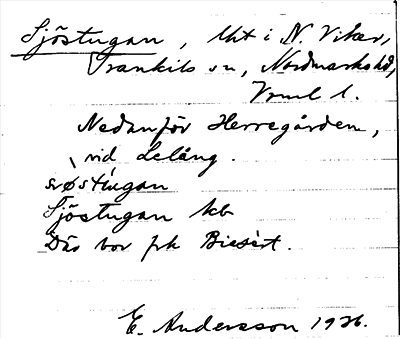 Sjöstugan, lht i N. Viker,
Trankils sn, Nordmarks hd,
Vrml l.
Nedanför Herregården,
vid Lelång.
Sjöstugan kb
Där bor frk
E. Andersson 1926.